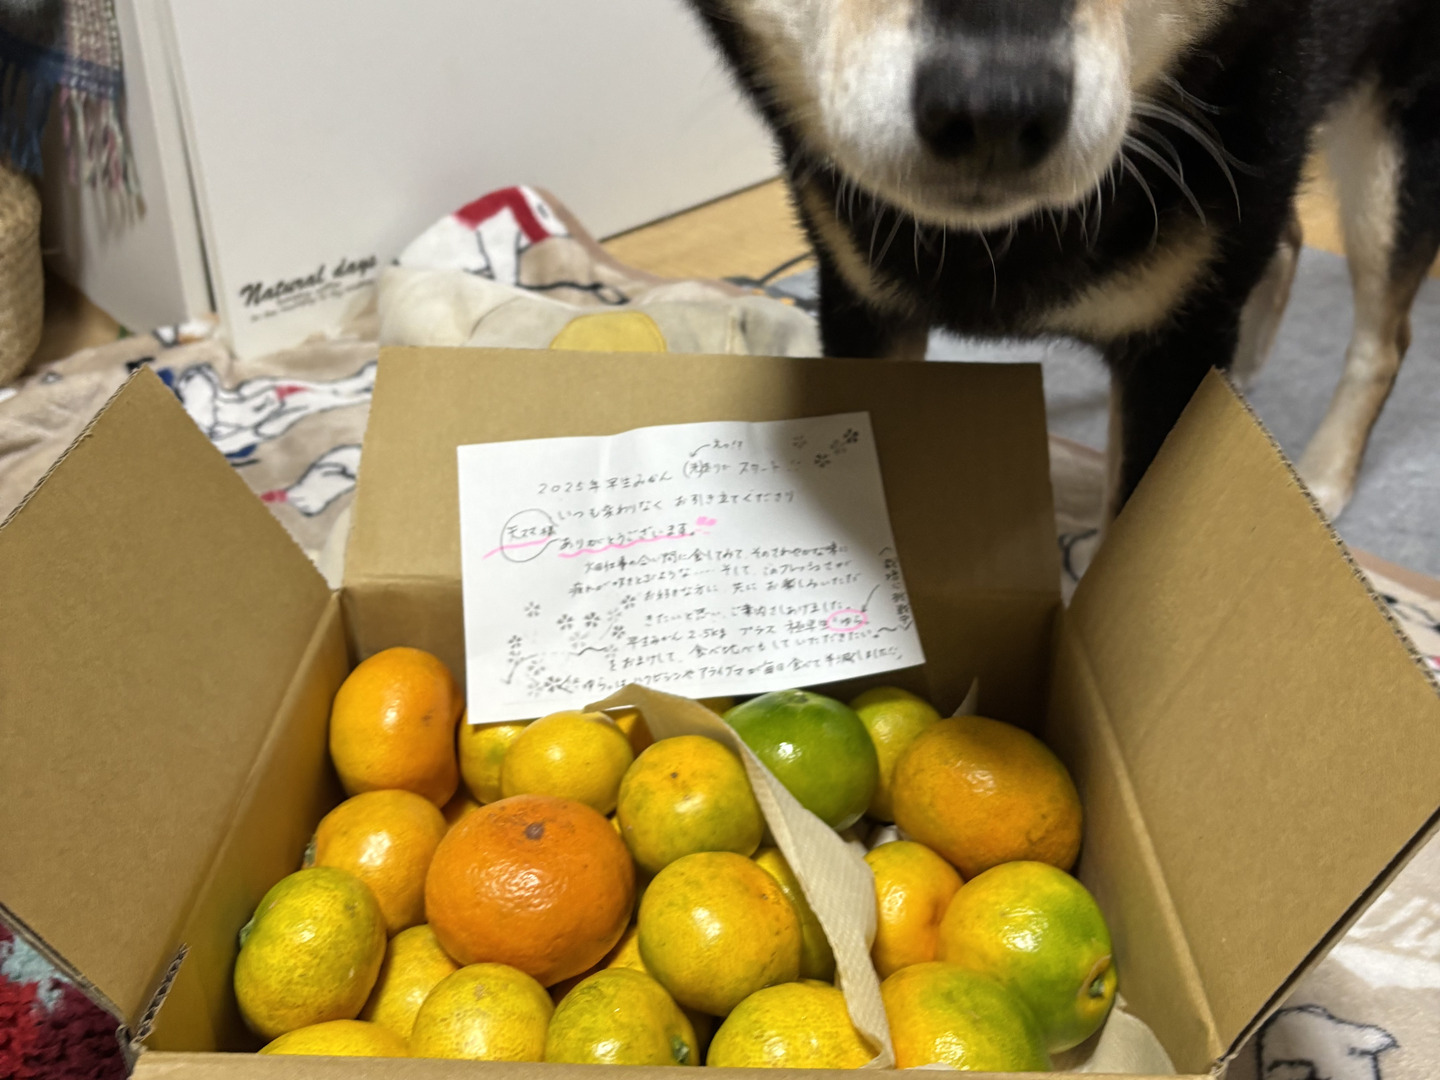 Natural days
2025年 早生みかん スタート
いつも変わりなく お引き立てくださり
天ママ様
ありがとうございます。
畑仕事の合い間に食してみて、そのさわやかな味に
疲れが吹きとぶような…… そして、このフレッシュさが
お好きな方に、先に お楽しみいただ
きたいと思い、ご案内さしあげました。
早生みかん 2.5kg プラス 極早生 ゆら
をおまけして、食べ比べをしていただきたい。
ゆら。は ハクビシンや アライグマが毎日食べて半減しました